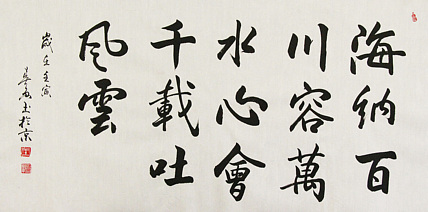 海纳百
川容萬
水心會
千載吐
風雲
歲在壬寅
書於京